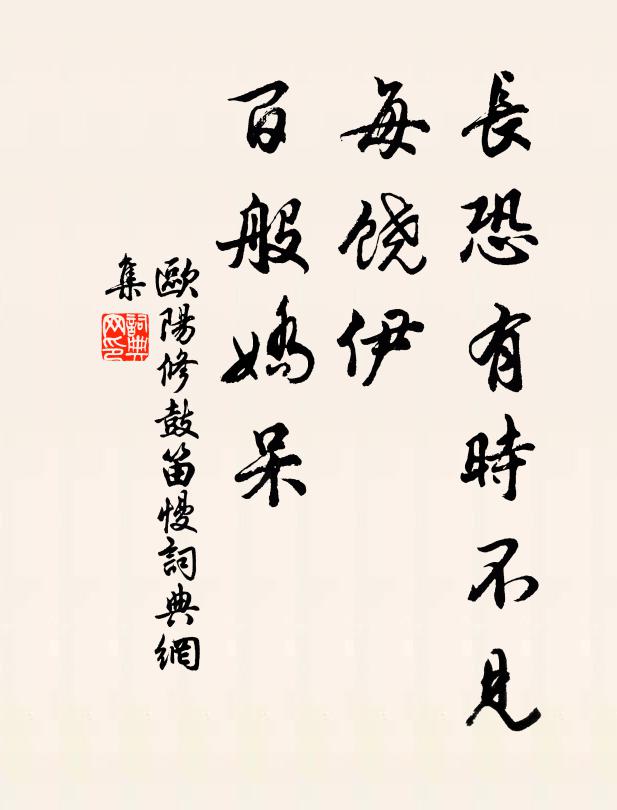 長恐有時不見
每饶伊
百般嬌呆
歐陽修鼓笛慢詞典網
集
詞典网印